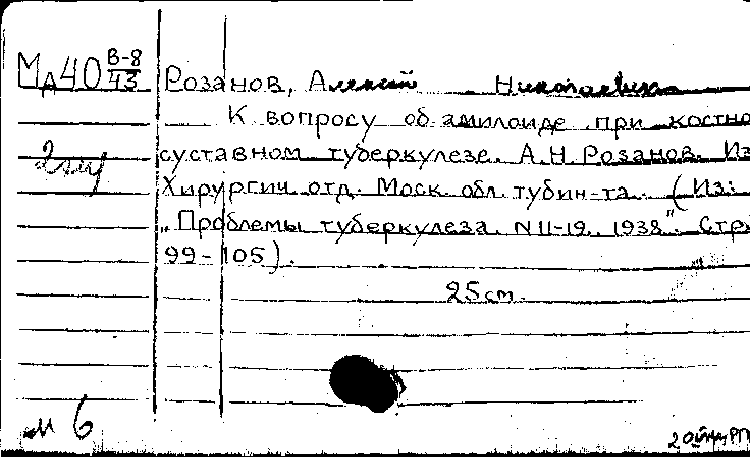 Мд40 В-8/43
Розанов, Алексей Николаевич
К вопросу об амилоиде при костно
суставном туберкулезе. А.Н. Розанов. Из
Хирургич. отд. Моск. обл. тубин-та. (Из:
„Проблемы туберкулеза. N 11-12. 1938". Стр.
99-105).
25 cm.
м 6